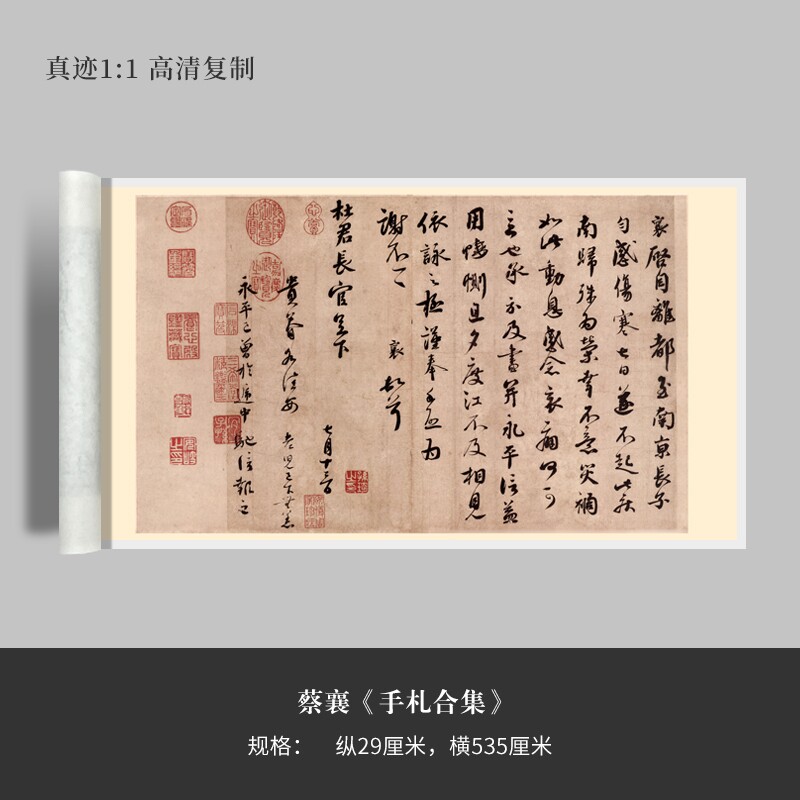 真迹1:1 高清复制
襄啓自離都至南京長子
勻感傷寒七日遂不起此疾
南歸殊為榮幸不意災禍
如此動息感念哀痛何可
言也承示及書并永平信益
用悽惻旦夕度江不及相見
依詠之極謹奉手啓為
謝不一一 襄頓首
杜君長官足下
七月十三日
貴眷各佳安 老兒已下無恙
永平已曾於遞中馳信報之
蔡襄《手札合集》
规格： 纵29厘米，横535厘米